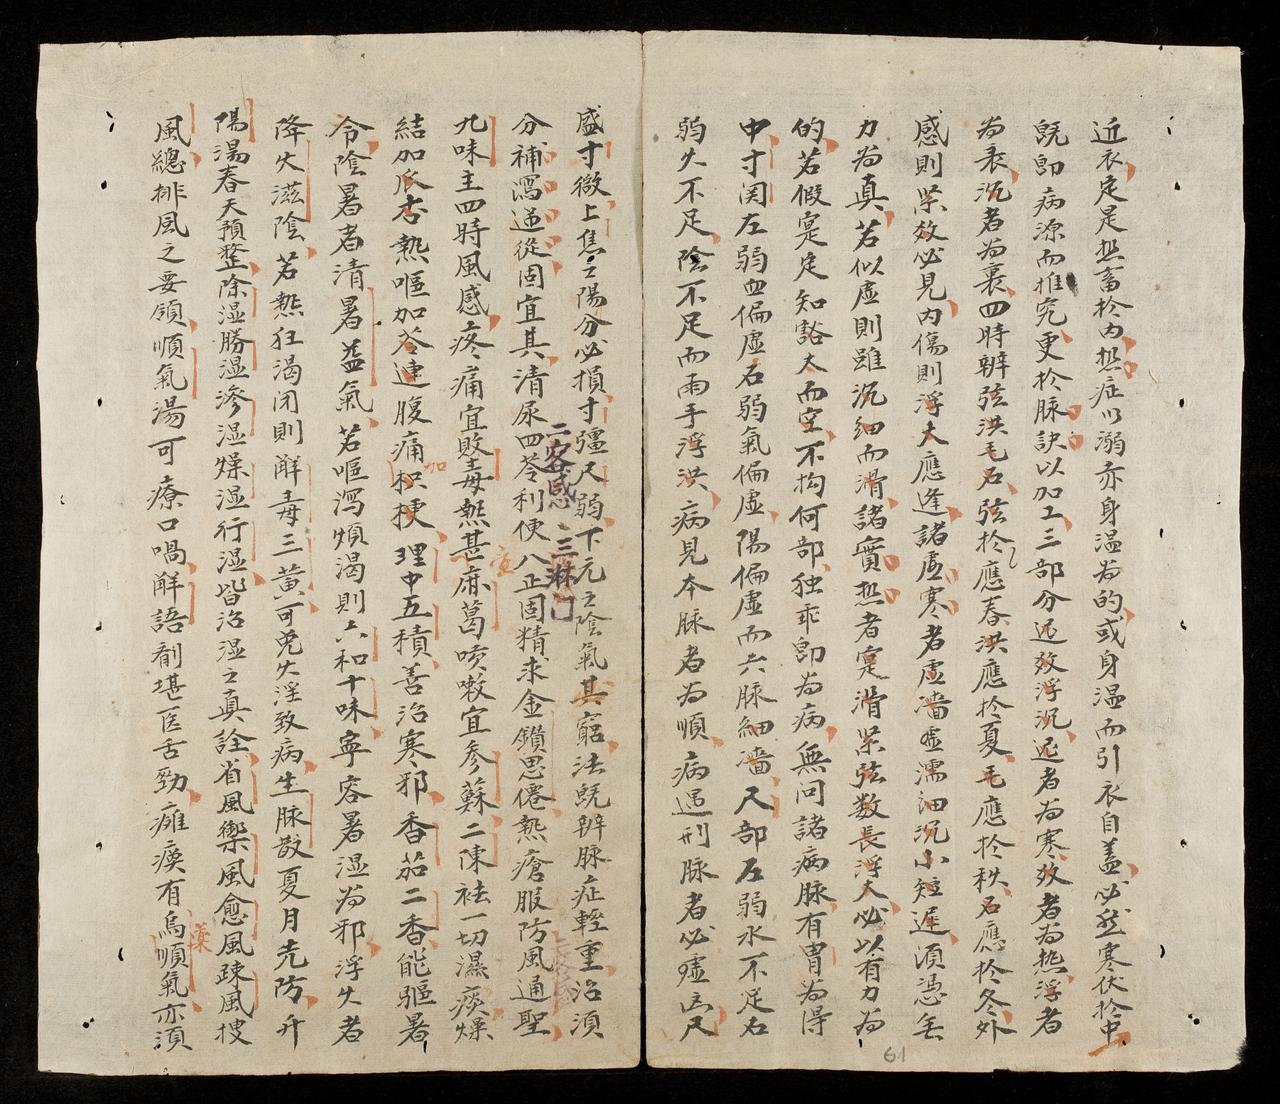 近衣定是热畜於内热症以溺亦身温为的或身温而引衣自盖必然寒伏於中
既即病源而推究更於脉訣以加工三部分迟效浮沉迟者为寒效者为热浮者
为表沉者为裏四時辨弦洪毛石弦於應春洪應於夏毛應於秋石應於冬外
感則紧效必見内傷則浮大應逢諸虚寒者虚濇虚濡细沉小短遲須憑無
力为真若似虚則雖沉细而滑諸實热者寔滑紧弦数長浮大必以有力为
的若假寔定知豁大而空不拘何部独乖即为病無问諸病脉有胃为得
中寸関左弱血偏虚右弱氣偏虚陽偏虚而六脉細濇尺部左弱水不足右
弱火不足陰不足而兩手浮洪病見本脉者为順病遇刑脉者必虚尺
盛寸微上焦之陽分必損寸彊尺弱下元之陰氣其窮法既辨脉症輕重治須
分補瀉逆從固宜其清尿四苓利便八正固精求金鑽思僊熱瘡服防風通聖
二客感 三淋门
九味主四時風感疼痛宜敗毒熱甚麻葛咳嗽宜参蘇二陳祛一切濕痰燥
結加瓜杏熱嘔加苓連腹痛加枳梗理中五積善治寒邪香茹二香能驅暑
令陰暑者清暑益氣若嘔瀉煩渴則六和十味寧容暑湿为邪浮火者
降火滋陰若熱狂渴闭則解毒三黄可免火淫致病生脉散夏月先防升
陽湯春天預整除湿勝湿滲湿燥湿行湿皆治湿之真詮省風禦風愈風疎風搜
風總排風之要領順氣湯可療口喎解語劑堪医舌勁癱瘓有烏藥順氣亦須
61